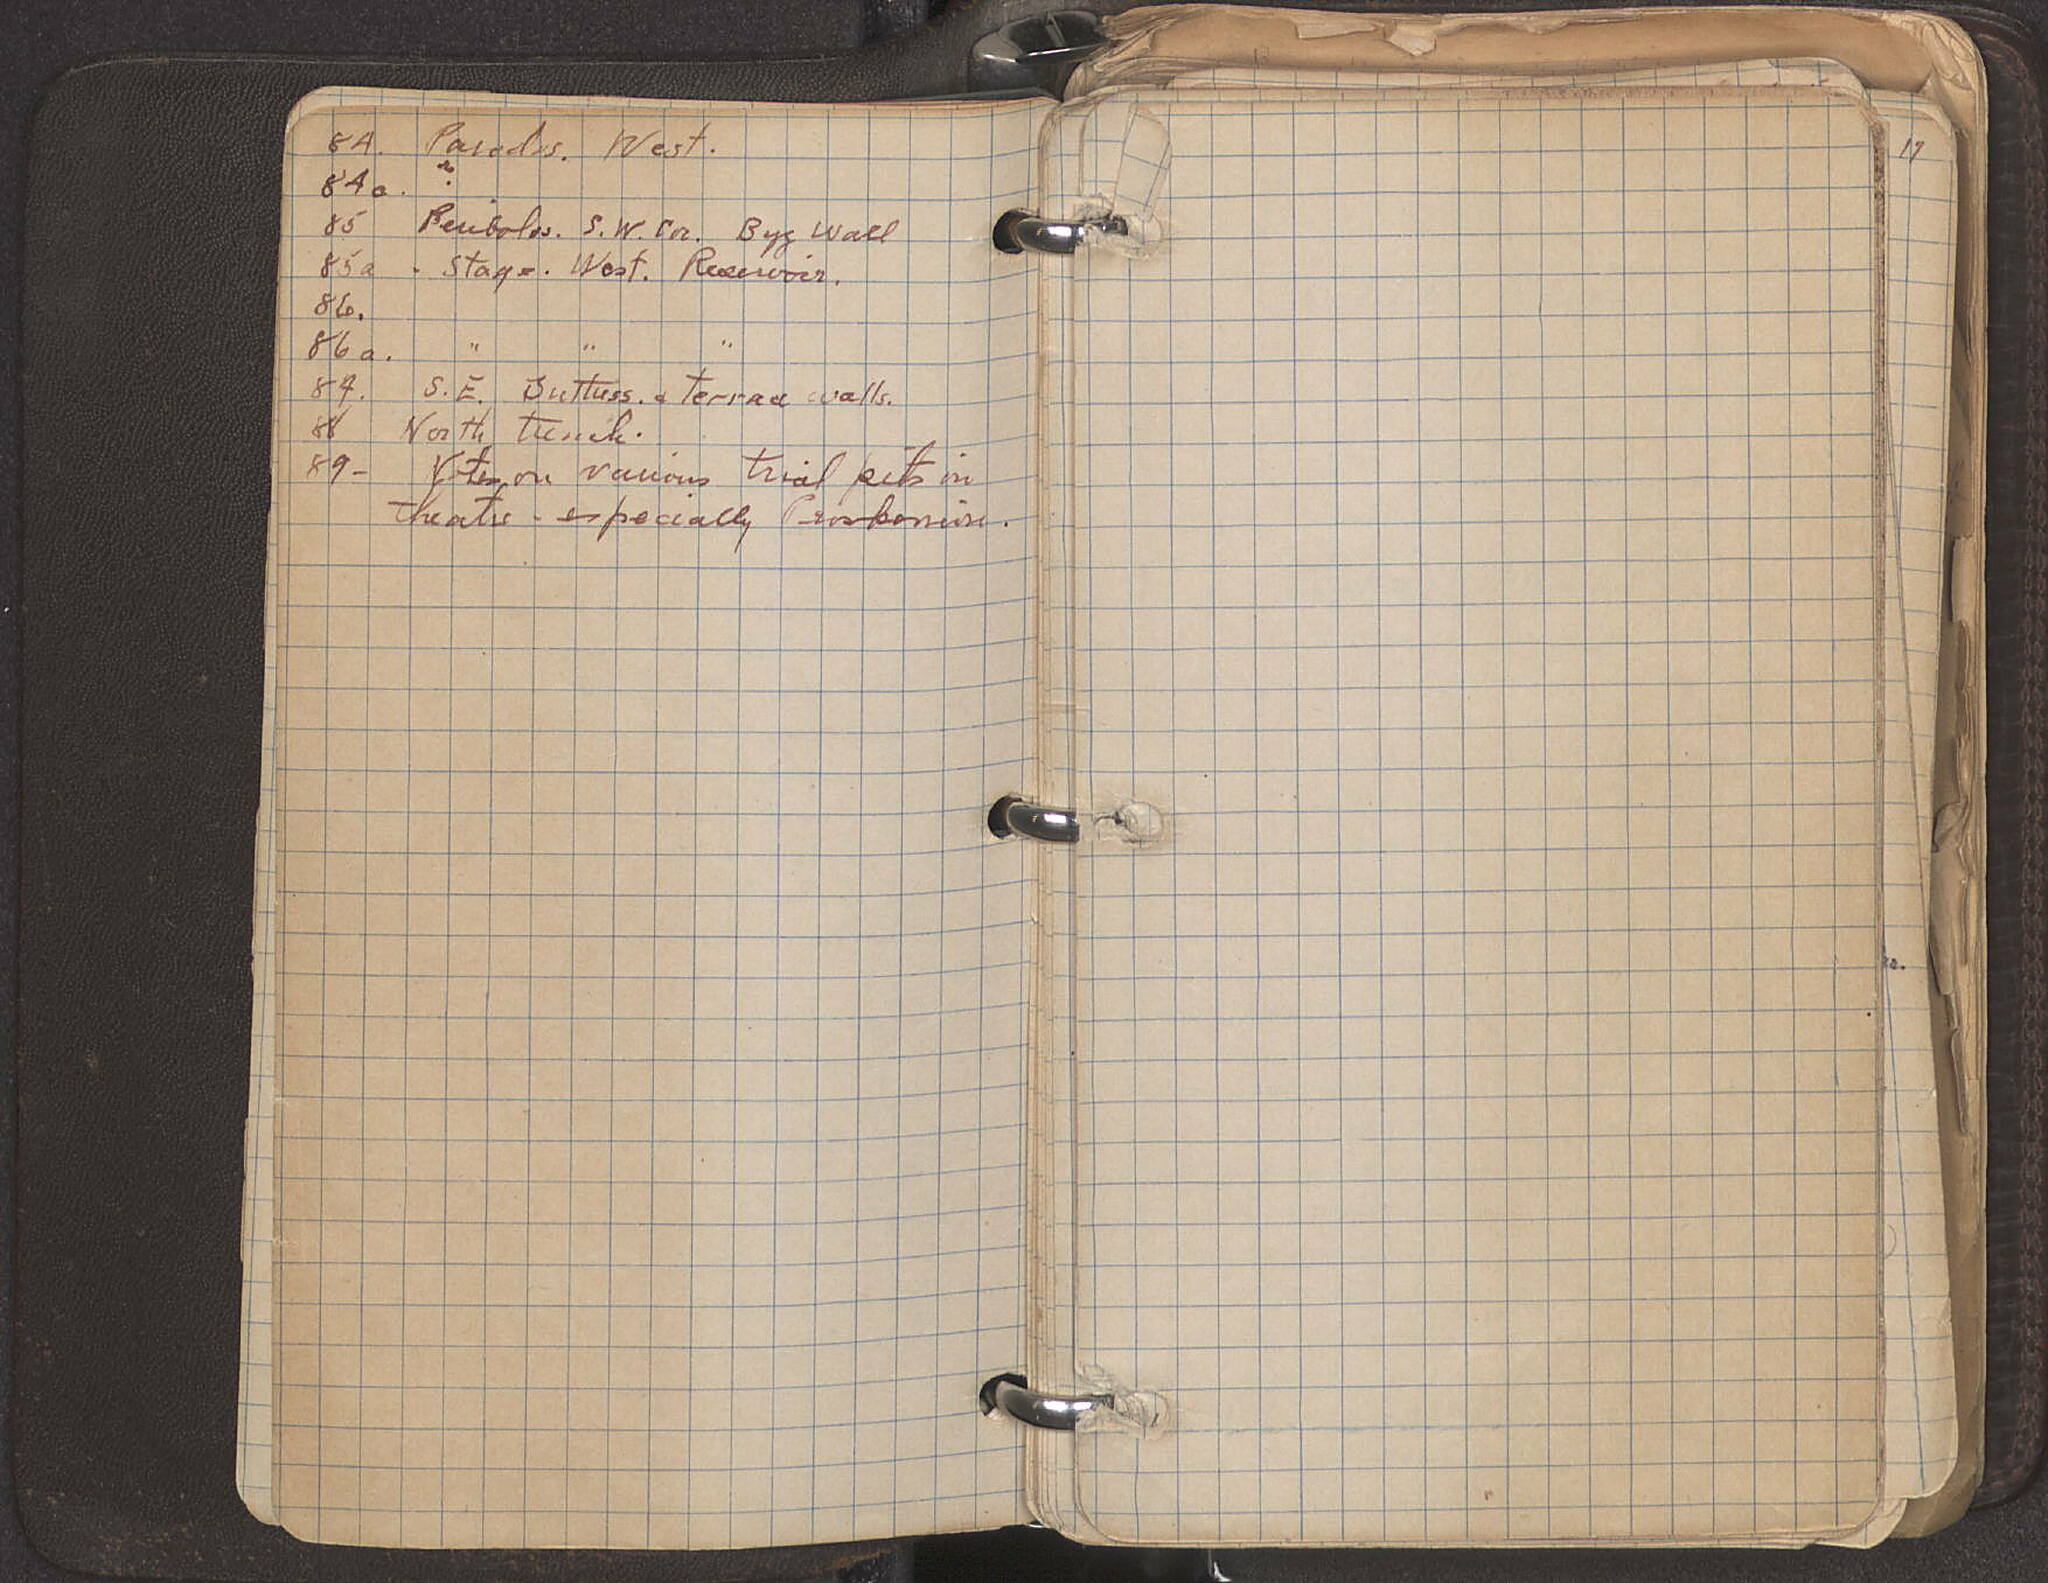 84. Parodos. West.
84a. ?
85 Peribolos. S.W. Cor. Byz Wall
85a. Stage. West. Reservoir.
86.
86a. " " "
87. S.E. Buttress. & terrace walls.
88 North trench.
89- Notes on various trial pits in
theatre - especially Proskenion.
17